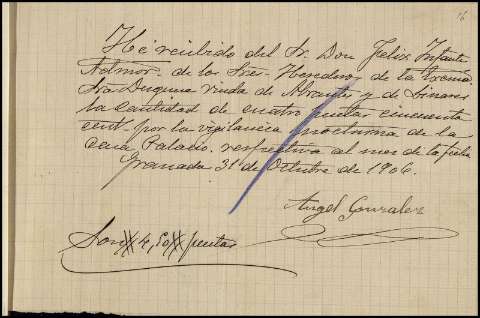 16
He recibido del Sr. Don Felix Infante
Admor. de los Sres. Herederos de la Excma.
Sra Duquesa viuda de Abrantes y de Linares
la cantidad de cuatro pesetas cincuenta
cent. por la vigilancia nocturna de la
Casa Palacio respectiva al mes de la fecha
Granada 31 de Octubre de 1906.
Angel Gonzalez
Son # 4,50 # pesetas